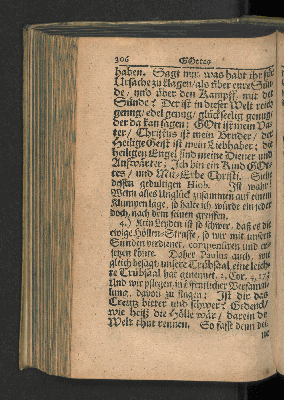 206 GOttes
haben. Sagt mir, was habt ihr für
Ursache zu klagen/ als über eure Sün-
de/ und über den Kampff mit der
Sünde? Der ist in dieser Welt reich
genug/ edel genug/ glückseelig genug/
der da kan sagen: GOtt ist mein Va-
ter/ Christus ist mein Bruder/ der
Heilige Geist ist mein Liebhaber; die
heiligen Engel sind meine Diener und
Aufwärter; Ich bin ein Kind GOt-
tes/ und Mit-Erbe Christi. Seht
dessen gedultigen Hiob. Ist wahr!
Wenn alles Unglück zusammen auf einem
Klumpen lage, so solte ich würde ein jeder
doch nach dem seinen greiffen.
4.) Kein Leyden ist so schwer, daß es die
ewige Höllen-Straffe, so wir mit unsern
Sünden verdienet, compensiren und er-
setzen könte. Daher Paulus auch, wie
gleich besagt, unsere Trübsaal eine leich-
te Trübsaal hat genennet. 2. Cor. 4, 17.
Und wir pflegen in öffentlicher Versamm-
lung davon zu singen: Ist dir das
Creutz bitter und schwer? Gedenck/
wie heiß die Hölle wär/ darein die
Welt thut rennen. So fasse denn dei-
ne